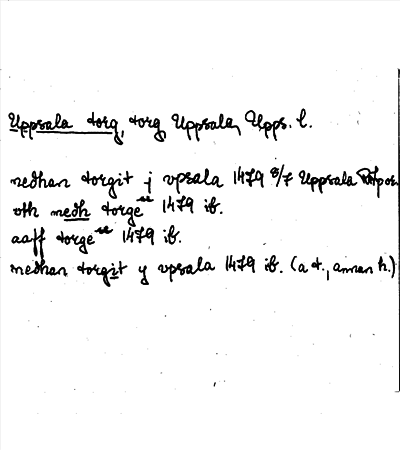 Uppsala torg, torg, Uppsala, Upps. l.
nedhan torgit j vpsala 1479 8/7 Uppsala
vth medh torge 1479 ib.
aaff torge 1479 ib.
nedhan torgit y vpsala 1479 ib. (a t., annan h.)